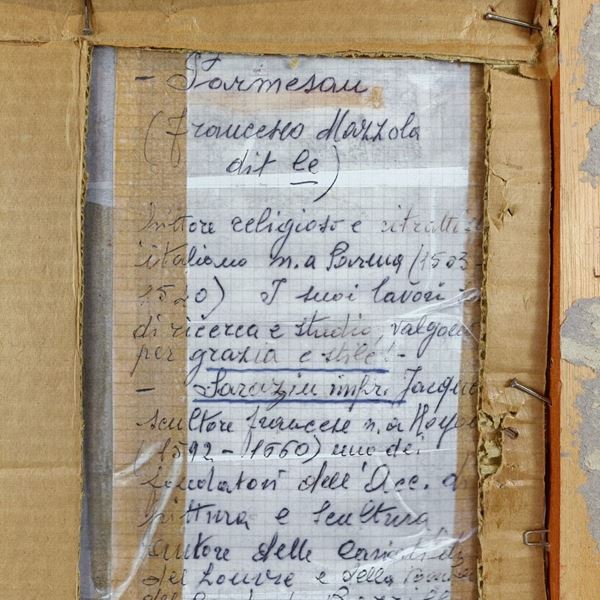 - Parmesan
(Francesco Mazzola
dit le)
Pittore religioso e ritratti
italiano n. a Parma (1503-
1520) I suoi lavori
di ricerca e studio, valgo
per grazia e stile! -
- Sarazin impr. Jacqu
scultore francese n. a Noyo
(1592 - 1660) uno dei
fondatori dell'Acc. di
pittura e Scultura
autore delle cariatidi
del Louvre e della
del